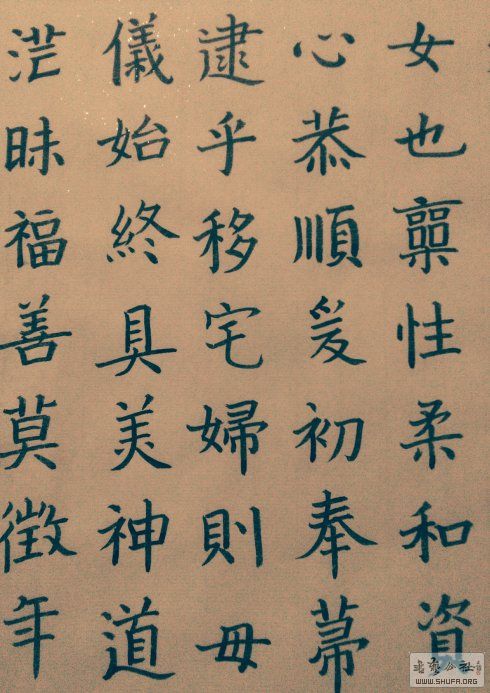 女也稟性柔和資
心恭順爰初奉帚
逮乎移宅婦則母
儀始終具美神道
茫昧福善莫徵年
WWW.SHUFA.ORG